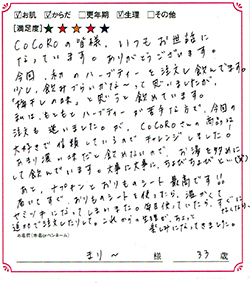 ☑お肌 ☑からだ □更年期 ☑生理 □その他
【満足度】★★★★★
CoCoRoの皆様、いつもお世話に
なっています。ありがとうございます。
今回、初のハーブティーを注文し飲んでます。
少し、飲みづらいかな〜って思いましたが、
「梅干しの味」と思うと飲めています。
私は、もともとハーブティーが苦手な方で、今回の
注文も迷いました。が、CoCoRoさんの商品は
大好きで信頼しているのでチャレンジしました。
あまり濃い味だと飲めないので、お湯を多めに
して飲んでいます。大事に大事に、ちびちびと…(笑)
あと、ナプキンとおりものシート最高です!!
届いてすぐ、おりものシートを使ったら、温かくて
ヤミツキになってしまいました。毎日使っていたら、すぐになくなり、
追加で注文したりして。これからの生理が、ちょっと
楽しみになってきました。
の名前(本名orペンネーム)
まりー 様 33 歳